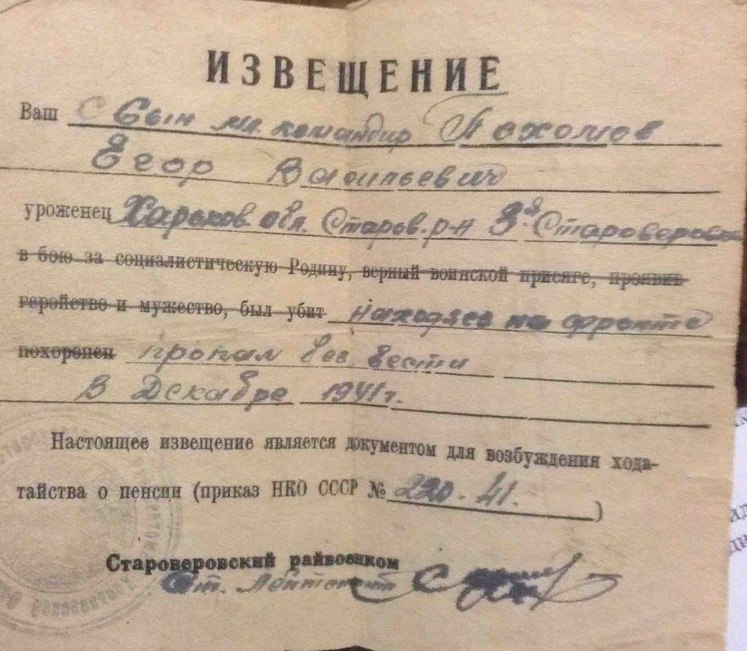 ИЗВЕЩЕНИЕ
Ваш Сын мл. командир Похомов
Егор Васильевич
уроженец Харьков обл. Старов. р-н 3-я Староверовка
в бою за социалистическую Родину, верный воинской присяге, проявив
геройство и мужество, был убит находясь на фронте
похоронен пропал без вести
в Декабре 1941 г.
Настоящее извещение является документом для возбуждения хода-
тайства о пенсии (приказ НКО СССР № 220-41. )
Староверовский райвоенком
Ст. Лейтенант